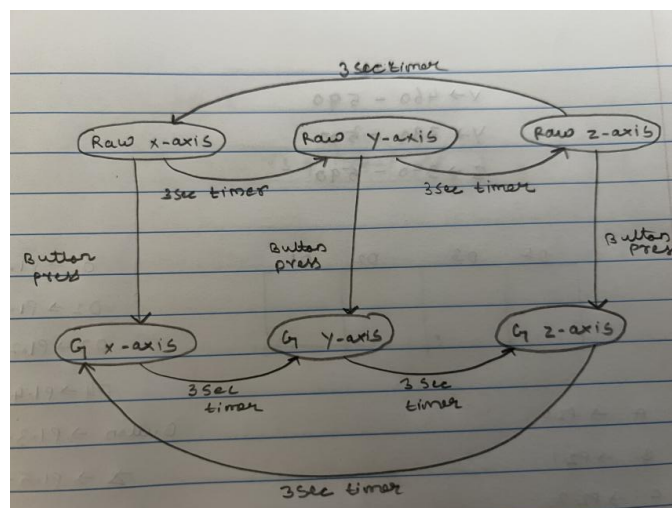 3sec timer
Raw x-axis
Raw y-axis
Raw z-axis
3sec timer
3sec timer
Button
press
Button
press
Button
press
G x-axis
G y-axis
G z-axis
3sec
timer
3sec
timer
3sec timer